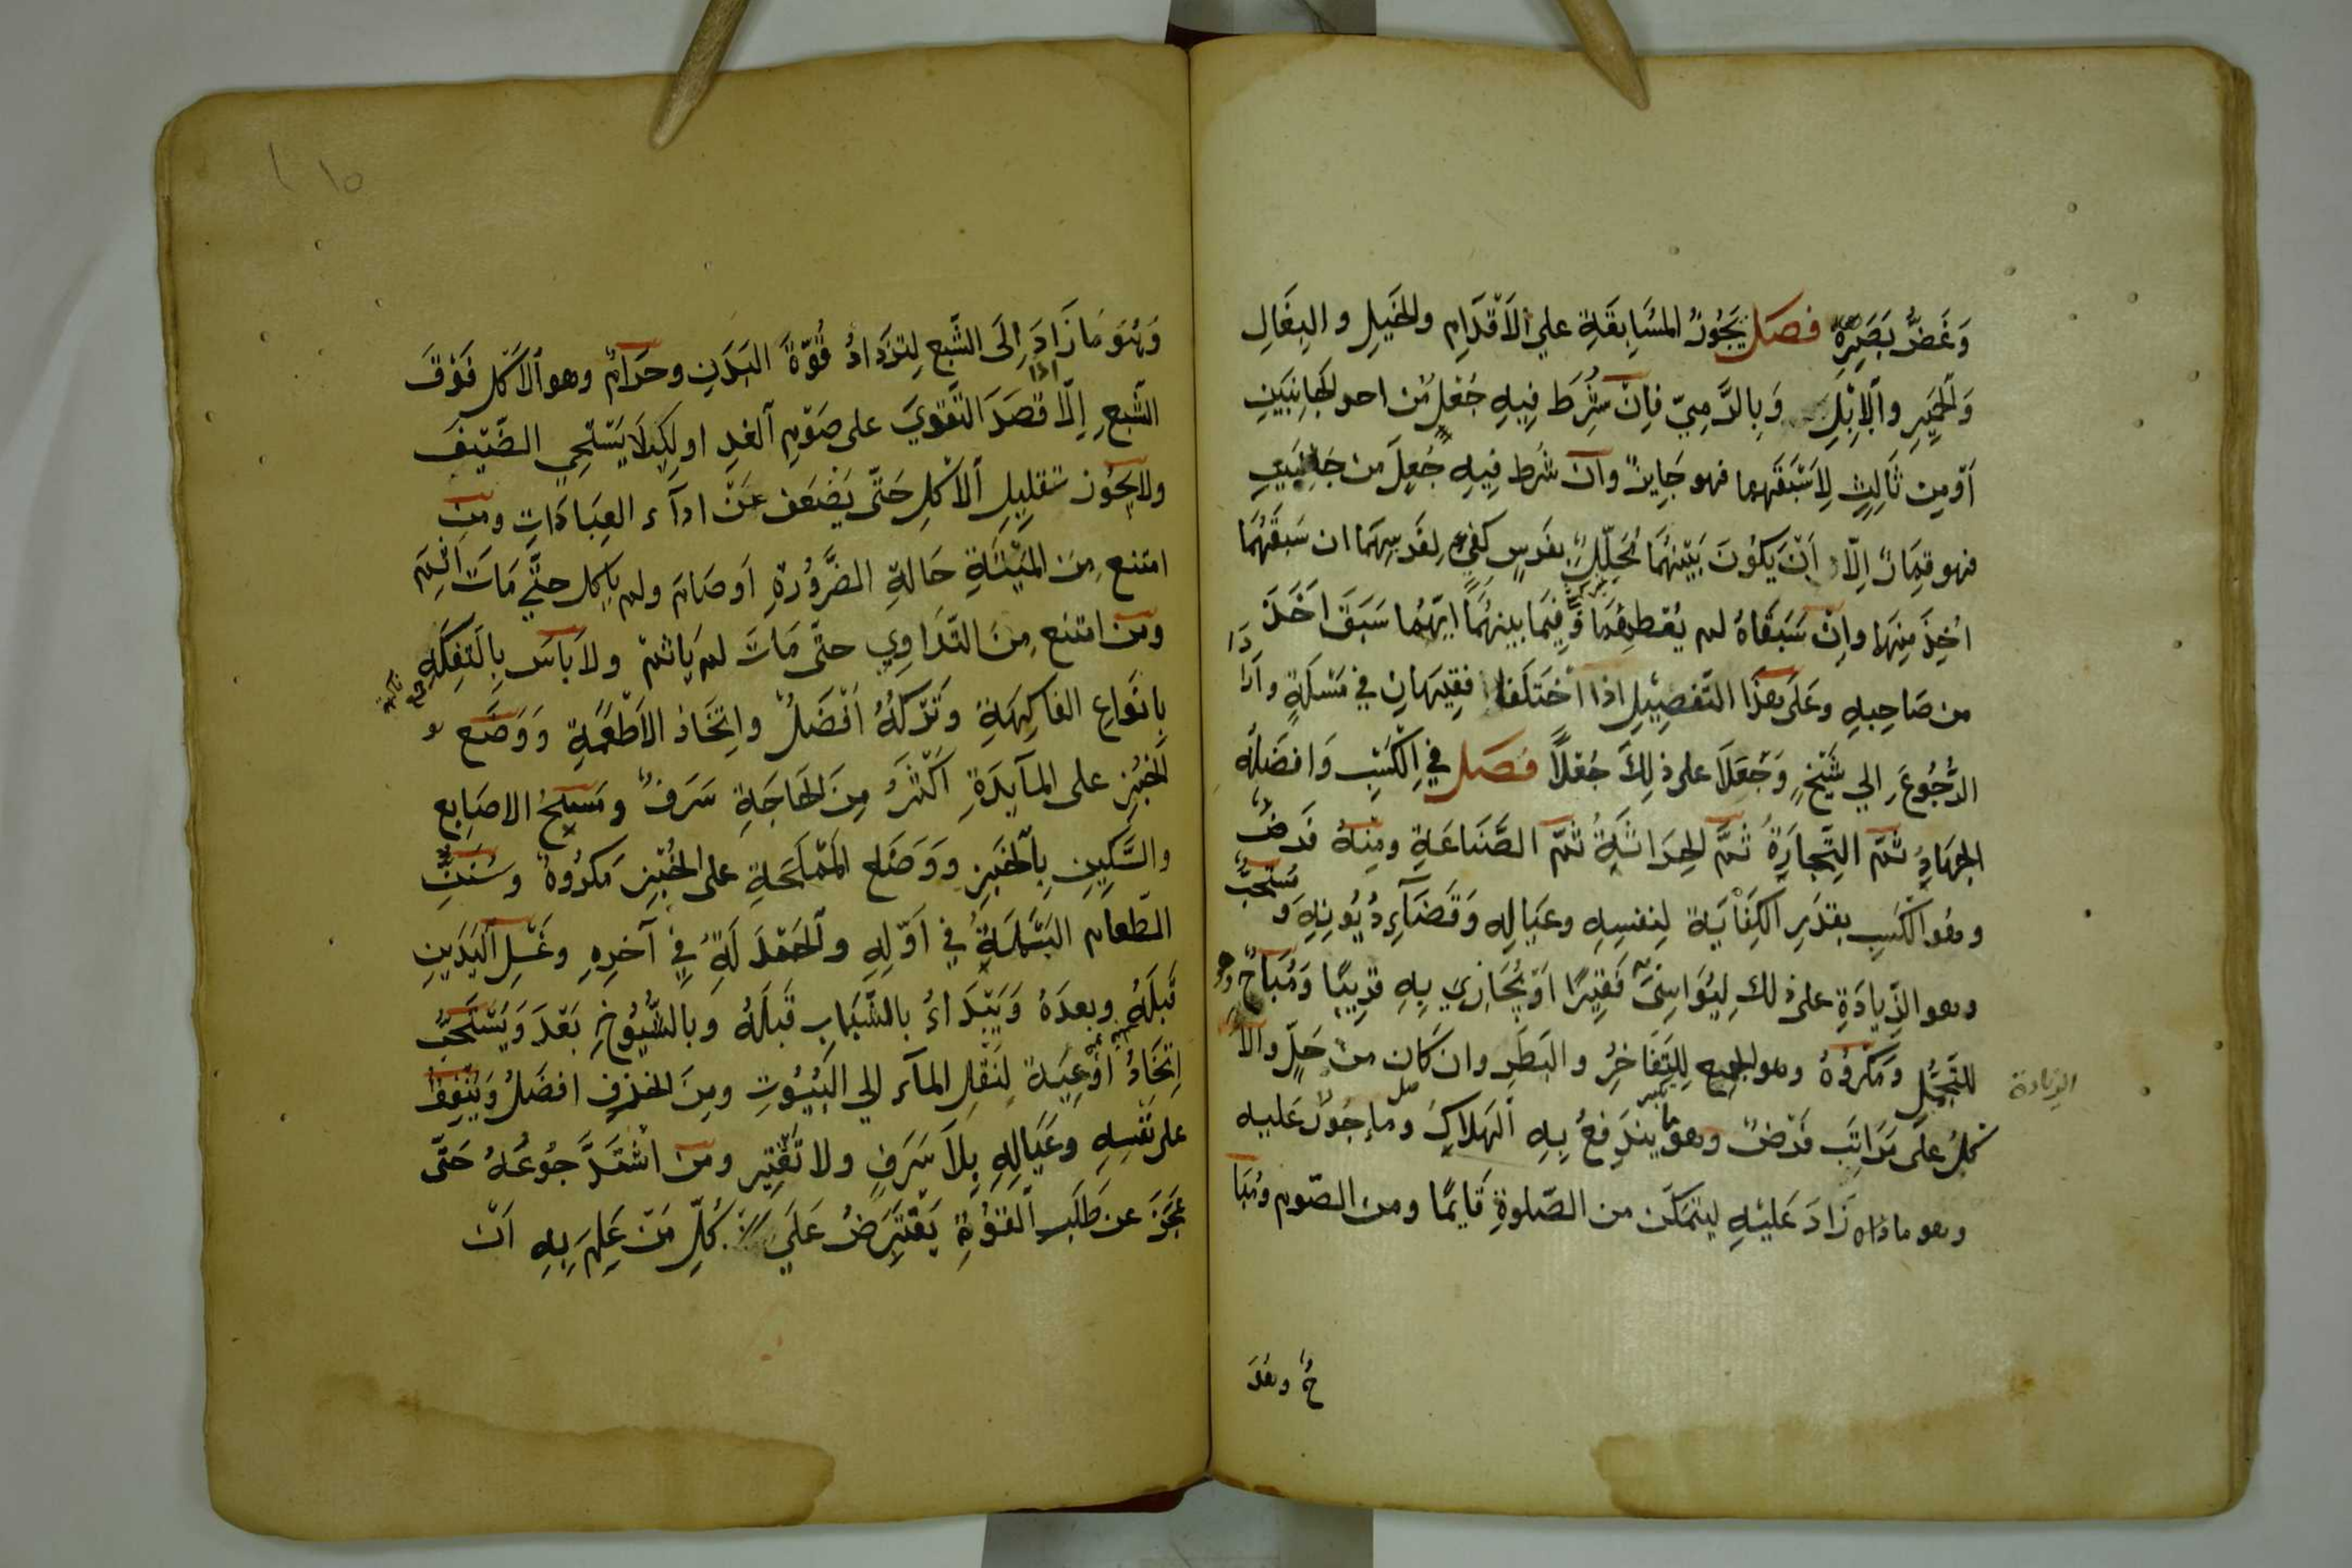 وَغَضُّ بَصَرِهِ فصل يَجُوزُ المسَابقَةِ علي الاَقْدَامِ والخَيلِ والبِغَالِ
وَالحَميرِ وَالاِبْلِ وَبِالرَّمِيّ فاِنْ شُرطَ فِيهِ جُعْل مُنْ احد الجَانِبَينِ
اَوْمِن ثَالِثٍ لِاَسْبَقَهِمَا فهو جَايزٌ وَاَن شُرط فِيهِ جُعِلَ من جَانِبَينِ
فهو قِمَارٌ اِلّا اَنْ يَكُونَ بَيْنَهُمَا مُحَلِّلٌ بفَرسٍ كفيءٍ لِفَرسِهِمَا ان سَبَقَهُمَا
اخِذَ مِنهما واِنْ سَبَقَاهُ لم يُعْطِهُمَا وَفِيمَا بينهُمَا ايّهُمَا سَبَقَ اَخَذَ
من صَاحِبِهِ وعَلَى هذَا التَّفصِيْلِ اذا اخْتَلَفَا فقِيْهَانِ في مَسْئَلَةٍ وَارَادَا
الرُّجُوعَ الي شَيْخٍ وَجَعَلَا على ذلِكَ جُعْلاً فصل في الكَسْبِ وَافضَلُهُ
الجِهَادُ ثمَّ التِّجَارَةُ ثمَّ الحِرَاثَةُ ثمَّ الصِّنَاعَةِ ومِنهُ فَرضٌ
وهُو الكَسْبِ بقدَرِ الكِفَايَة لِنفسِهِ وعيَالِهِ وَقَضَآءِ دُيُونِهِ وَ مُستَحَبٌّ
وهو الزِّيادَةِ على ذلك لِيُوَاسِيَ فَقِيْرًا اَوْ يُجَازِي بِهِ قَرِيبًا وَمُبَاحٌ وهو
الزيادة
للتَّجَمُّلِ وَمَكْرُوهٌ وهو الجمع لِلتَّفَاخُرِ والبَطَرِ وان كَان مِنْ حَلٍّ والا
كلُ على مَرَاتِبَ فَرْضٌ وهو ما يندَفعُ بِهِ الهَلاكِ ومَا جُوزٌ عَليه
وهو ما زَادَ عَليْهِ ليتمَكّن من الصَّلوةِ قَايِمًا ومن الصّوم ومُبَا
حٌ وهُوَ
١٥
وَهُوَ مَا زَادَ اِلَى الشَّبع لِتَزدَادُ قُوّةُ البَدَنِ وحرَامٌ وهو الاَكل فَوْقَ
الشَّبعِ اِلّا اذا قصَدَ التَّقوِيَ على صَوْمِ الغدِ او لِكيلَا يَسْتَحِي الضَّيْفَ
ولايَجُوز تقلِيلِ الاَكْلِ حَتّى يَضْعَف عَنْ ادآء العِبَادَاتِ ومَن
امتنع مِنَ المَيْتَةِ حَالةِ الضَّرُورَةِ اَو صَامَ ولم ياكل حتّي مَاتَ اثِمَ
ومَن امتنع مِنَ التَّدَاوِي حتّى مَاتَ لم يَاثم ولَا بَاسَ بِالتفِكَّهِ
بِانوَاعِ الفاكِهَةِ وَتَركُهُ اَفْضَلُ واِتخَاذ الاَطْعِمَةِ وَوَضْع
الخُبزِ على المآيدَةِ اكْثَرُ مِنَ الحَاجَةِ سَرَفٌ ومَسْحُ الاصَابِع
والسّكِينِ بِالخَبزِ ووَضع المَمْلَحَةِ على الخُبْزِ مَكرُوهٌ وسُنَنُ
الطّعام البَسْمَلَةُ في اَوّلِهِ والحَمْدَلَةُ فيِ آخرِهِ وغَسْلِ اليَدَينِ
قَبلَهُ وبعدَهُ وَيَبْدَاءُ بالشَّبَابِ قَبلَهُ وَبالشُّيُوخِ بَعْدَ وَيُسْتَحَبُّ
اِتخَاذُ اَوْعِيَة لِنَقلِ المآء الي البَيُوتِ ومِنَ الخزفِ افضَلُ وَيُنْفِقُ
على نَفسِهِ وعَيَالِهِ بِلَا سَرَفٍ ولا تَقْتِير ومَن اشْتَدَّ جُوعُهُ حَتّى
عَجَزَ عن طَلَبِ القُوةِ يَفْتَرِضُ عَلَي كُلِّ مَنْ عَلِمَ بِهِ اَن